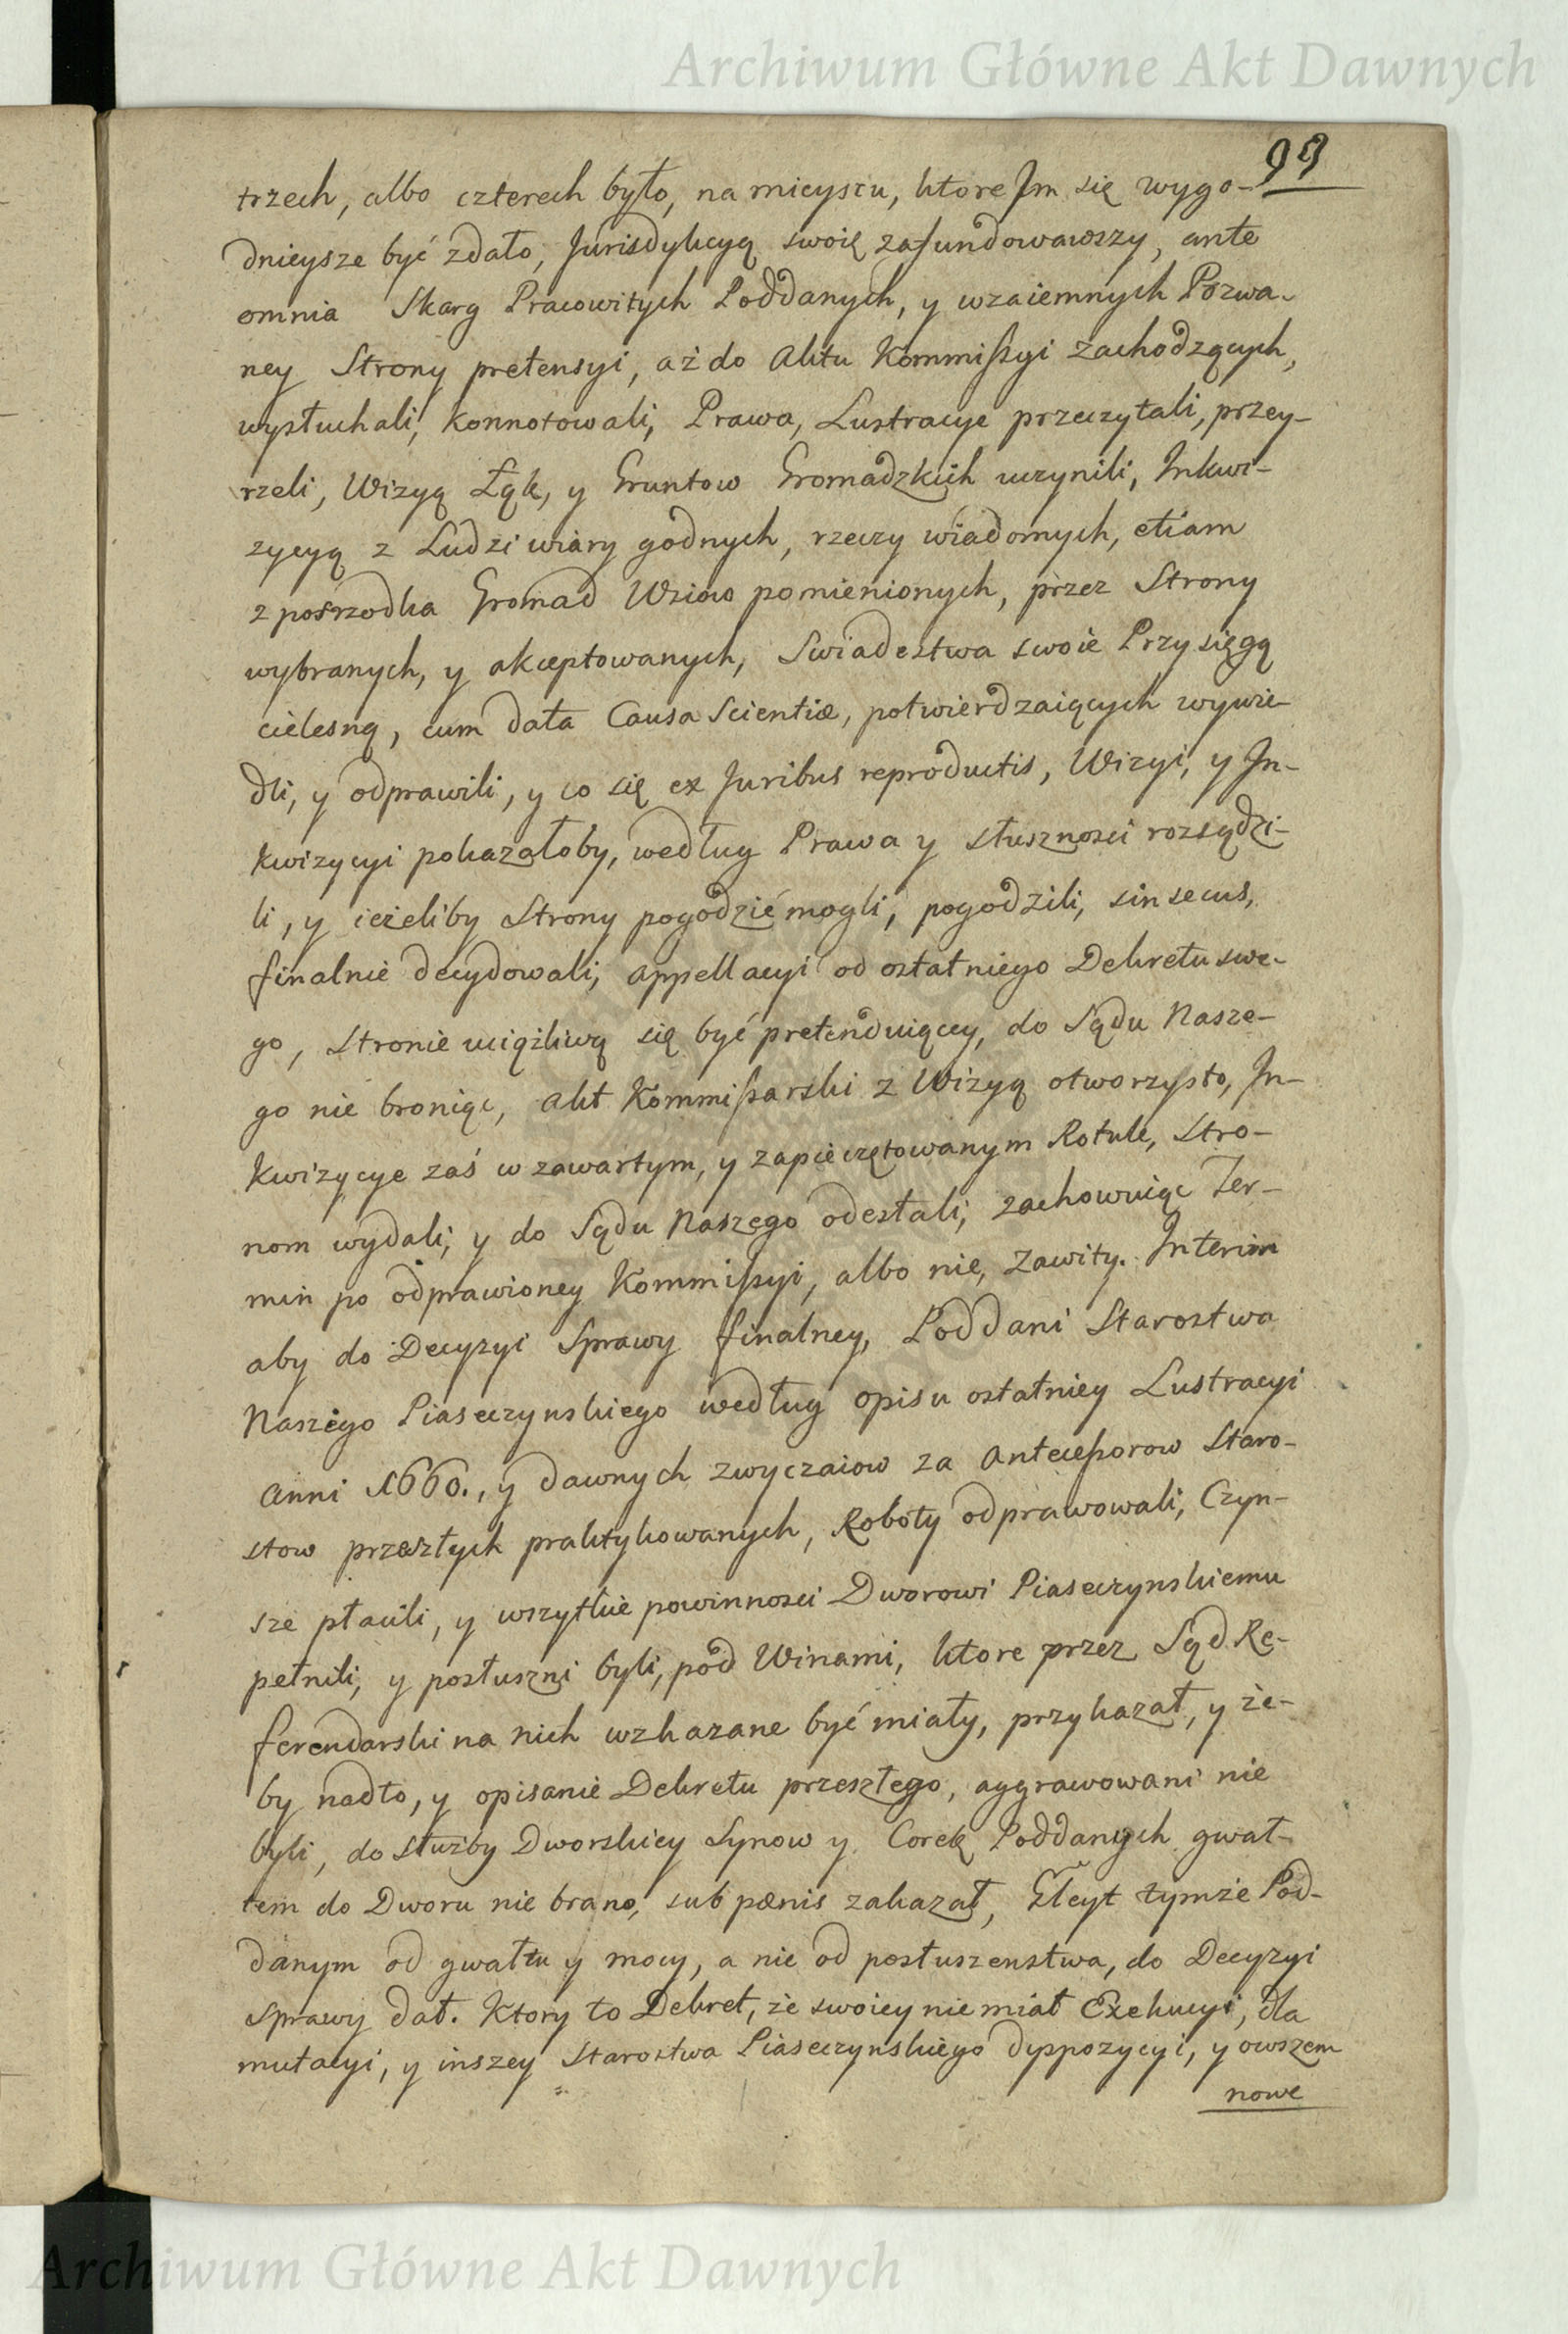 Archiwum Główne Akt Dawnych
99
trzech, albo czterech było, na mieyscu, ktore Jm się wygo-
dnieysze być zdało, Jurisdykcyą swoię zafundowawszy, ante
omnia Skarg Pracowitych Poddanych, y wzaiemnych Pozwa-
ney Strony pretensyi, aż do Aktu Kommissyi zachodzących,
wysłuchali, konnotowali, Prawa, Lustracye przeczytali, przey-
rzeli, Wizyą Łąk, y Gruntow Gromadzkich uczynili, Inkwi-
zycyą z Ludzi wiary godnych, rzeczy wiadomych, etiam
z posrzodka Gromad Wsiow pomienionych, przez Strony
wybranych, y akceptowanych, Swiadectwa swoie Przysięgą
cielesną, cum data Causa Scientiæ, potwierdzaiących wywie-
dli, y odprawili, y co się ex Juribus reproductis, Wizyi, y In-
kwizycyi pokazałoby, według Prawa y słusznosci rozsądzi-
li, y ieżeliby Strony pogodzić mogli, pogodzili, sin secus,
finalnie decydowali, appellacyi od ostatniego Dekretu swe-
go, stronie uciążliwą się być pretenduiącey, do Sądu Nasze-
go nie broniąc, Akt Kommissarski z Wizyą otworzysto, In-
kwizycye zaś w zawartym, y zapieczętowanym Rotule, Stro-
nom wydali, y do Sądu Naszego odesłali, zachowuiąc Ter-
min po odprawioney Kommissyi, albo nie, Zawity. Interim
aby do Decyzyi Sprawy finalney, Poddani Starostwa
Naszego Piaseczynskiego według opisu ostatniey Lustracyi
Anni 1660., y dawnych zwyczaiow za Antecessorow Staro-
stow przeszłych praktykowanych, Roboty odprawowali, Czyn-
sze płacili, y wszytkie powinnosci Dworowi Piaseczynskiemu
pełnili, y posłuszni byli, pod Winami, ktore przez Sąd Re-
ferendarski na nich wskazane być miały, przykazał, y że-
by nadto, y opisanie Dekretu przeszłego, aggrawowani nie
byli, do służby Dworskiey Synow y Corek Poddanych gwał-
tem do Dworu nie brano, sub pœnis zakazał, Gleyt tymże Pod-
danym od gwałtu y mocy, a nie od posłuszenstwa, do Decyzyi
Sprawy dał. Ktory to Dekret, że swoiey nie miał Exekucyi, dla
mutacyi, y inszey Starostwa Piaseczynskiego dyspozycyi, y owszem
nowe
Archiwum Główne Akt Dawnych